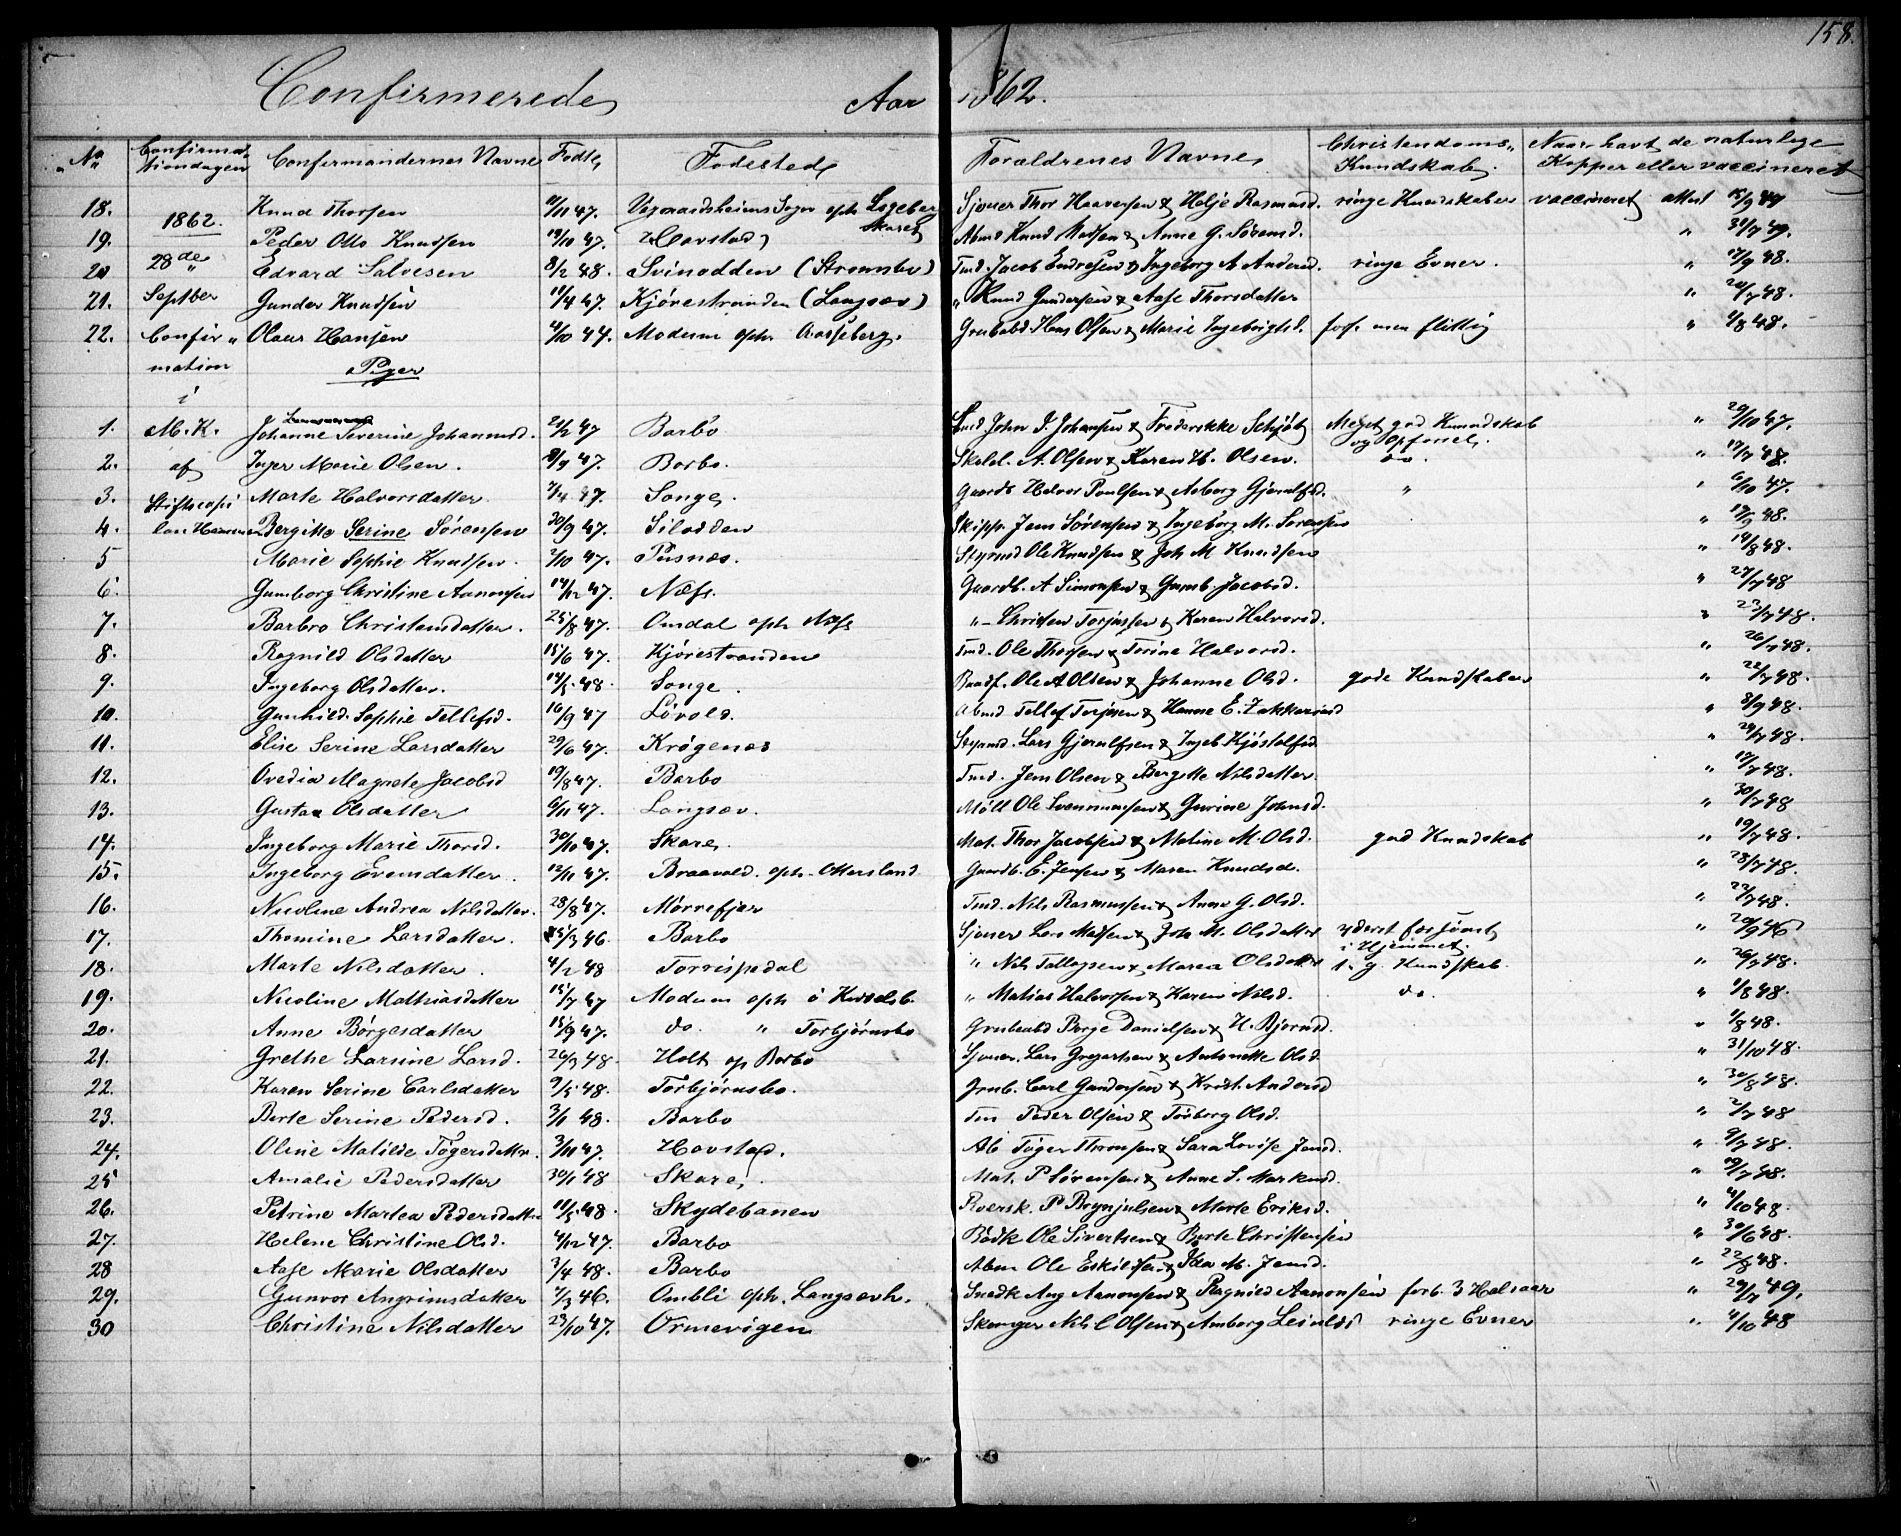 158.
Confirmerede Aar 1862.
No Confirmationsdagen Confirmandernes Navne Födt Födested Forældrenes Navne Christendoms Kundskab Naar havt de naturlige Kopper eller vaccineret
18. 1862. Knud Thorsen 11/11 47. Vegaardsheiens Sogn oph. Sjöuer Thor Haaversen & Helje Rasmusd. ringe Kundskaber vaccineret attest 15/9 49
19. 28de Peder Otto Knudsen 19/10 47. Havstad Abmd Knud Madsen & Anne G. Sörensd. " 31/7 49.
20 Septber Edvard Salvesen 8/2 48. Svinodden (Strømsbo) Tmd. Jacob Endresen & Ingeborg A. Andersd. ringe Evner. " 17/9 48.
21. Gunder Knudsen 11/4 47. Kjörestranden (Langsæv) " Knud Gundersen & Aase Thorsdatter " 20/7 48.
22. Confir- Olaus Hansen 4/10 47. Modum oph. Aasseberg. Grubabd Hans Olsen & Marie Ingebrigtsd. fors. men flittig " 1/8 48.
mation Piger
i
1. M. K. Johanne Severine Johannesd. 21/2 47 Barbo John J. Johansen & Frederikke Schjöt Meget god Kundskab og Opförsel. " 29/10 47.
2. af Inger Marie Olsen. 8/9 47. Barbo. Skold. A. Olsen & Karen H. Olsen. do. " 17/7 48.
3. Stiftscapel Marte Halvorsdatter 7/4 47. Songe. Gaardb Halvor Poulsen & Asborg Gjerulfsd. " " 6/10 47.
4. lan Bergitte Serine Sörensen 30/9 47. Silodden Skipp. Jens Sörensen & Ingeborg M. Sörensen " 19/9 48.
5 Marie Sophie Knudsen. 2/10 47. Pusnæs. Styrmd Ole Knudsen & Joh M Knudsen " 14/8 48.
6. Gunborg Christine Aanonsen 14/12 47. Næs. Gaardb. A Simonsen & Gunb. Jacobsd. " 27/7 48
7. Barbro Christensdatter. 25/8 47. Omdal oph Næs " Christen Torjussen & Karen Halvorsd. " 23/7 48.
8. Ragnild Olsdatter 15/6 47. Kjörestranden Tmd. Ole Thorsen & Torine Halvorsd. " 26/7 48.
9. Ingeborg Olsdatter. 14/5 48. Songe. Baadf. Ole A Olsen & Johanne Olsd. gode Kundskaber " 22/7 48.
10. Gunhild Sophie Tellefsd. 16/9 47 Lövold. Abmd Tellef Torjusen & Hanne E. Zakkariasd " 8/9 48.
11. Elise Serine Larsdatter 29/6 47. Krögenæs Styrmd. Lars Gjerulfsen & Ingeb Kjöstolfsd. " 24/7 48.
12. Ovedia Magrete Jacobsd 19/8 47. Barbo Tmd. Jens Olsen & Bergitte Nilsdatter. " 17/7 48.
13. Gustaa Olsdatter 6/11 47. Langsæv. Möll Ole Svenumsen & Gurine Johnsd. " 30/7 48
14. Ingeborg Marie Thorsd. 30/10 47. Skare. Mat. Thor Jacobsen & Maline M. Olsd. god Kundskab " 19/7 48.
15. Ingeborg Evensdatter. 12/11 47. Braavold. oph. Ottersland Gaardb. E. Jensen & Maren Knudsd. " 28/7 48.
16. Nicoline Andrea Nilsdatter. 28/8 47. Mörrefjær Tmd. Nils Rasmussen & Anne G. Olsd. " 22/7 48.
17. Thomine Larsdatter. 25/3 46. Barbo Sjöuer Lars Madsen & Joh M. Olsdatter yderst forsömt i Hjemmet. " 20/9 46
18. Marte Nilsdatter. 4/2 48 Torrispedal " Nils Tallagsen & Maren Olsdatter t. g. Kundskab. " 26/7 48.
19. Nicoline Mathiasdatter 15/7 47 Modum oph. Kirselsb. " Matias Halvorsen & Karen Nilsd. do. " 1/8 48.
20. Anne Börgesdatter 15/9 47. do. " Torbjörnsbo Grubeabd Börge Danielsen & H. Bjornsd. " 1/8 48.
21. Grethe Larsine Larsd. 26/3 48. Holt op Barbo Sjöuer. Lars Gregersen & Antonette Olsd. " 31/10 48.
22. Karen Serine Carlsdatter 9/5 48. Torbjörnsbo. Grub. Carl Gundersen & Krist. Andersd " 30/8 48.
23. Berte Serine Pedersd. 3/1 48. Barbo Tm. Peder Olsen & Torborg Olsd. " 2/7 48
24. Oline Matilde Tögersdatter. 3/11 47. Havstad. Ab Töger Thronsen & Sara Lovise Jensd. " 9/7 48.
25 Amalie Pedersdatter 30/1 48 Skare. Mat. P Sörensen & Anne S. Markusd. " 19/7 48.
26. Petrine Martea Pedersdatter 11/5 48. Skydebanen Roersk. P Brynjulsen & Marte Eriksd. " 4/10 48.
27. Helene Christine Olsd. 4/12 47. Barbo Bödk Ole Sivertsen & Berte Christensen " 30/6 48.
28 Aase Marie Olsdatter 3/4 48. Barbo Abm Ole Eskilsen & Ida M. Jensd. " 22/8 48.
29. Gunvor Angrimsdatter 7/3 46. Ombli oph. Langsævh. Snedk Ang Aanonsen & Ragnild Aanonsen forb. 3 Halvaar " 29/7 49.
30 Christine Nilsdatter 23/10 47. Ormevigen Nils C Olsen & Amborg Leivulsd ringe Evner " 4/10 48